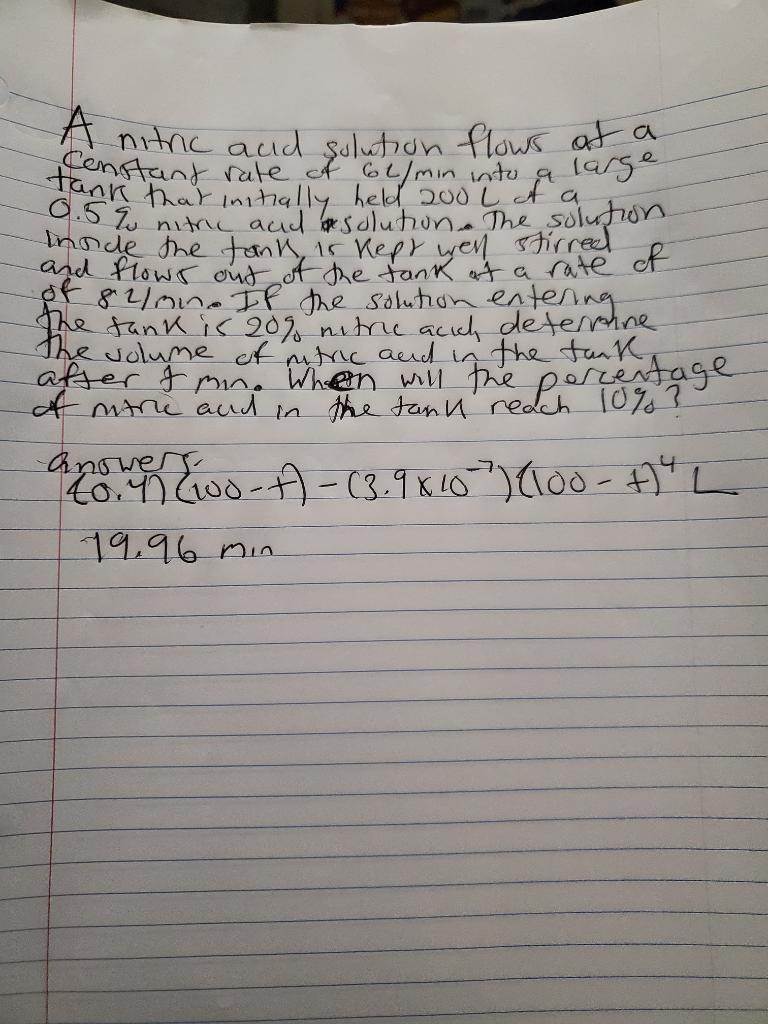 A nitric acid solution flows at a
constant rate of 6L/min into a large
tank that initially held 200 L of a
0.5% nitric acid solution. The solution
inside the tank is kept well stirred
and flows out of the tank at a rate of
of 8 L/min. If the solution entering
the tank is 20% nitric acid, determine
the volume of nitric acid in the tank
after t min. When will the percentage
of nitric acid in the tank reach 10%?
answers.
(0.4)(100-t) - (3.9x10⁻⁷)(100-t)⁴ L
19.96 min